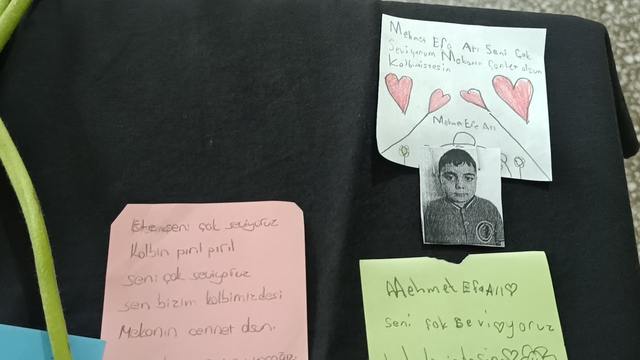 Mehmet Efe Arı Seni Çok
Seviyorum Mekanın Cennet olsun
Kalbimizdesin
Mehmet Efe Arı
Efem seni çok seviyoruz
Kalbin pırıl pırıl
seni çok seviyoruz
sen bizim kalbimizdesi
Mekanın cennet olsun.
Mehmet Efe Arı♡
seni çok seviyoruz